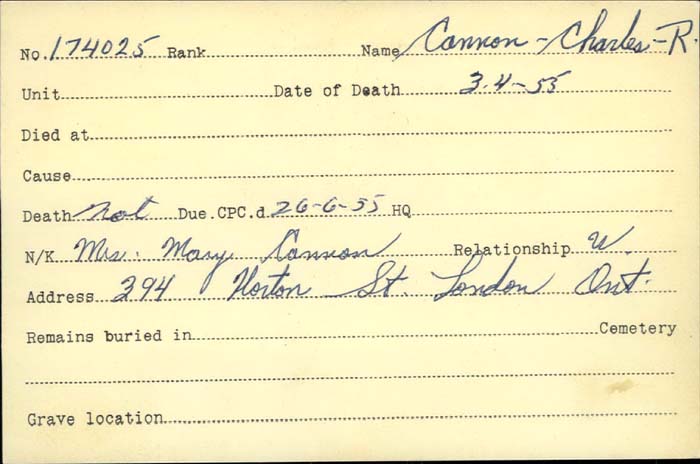 No. 174025 Rank Name Cannon - Charles - R.
Unit Date of Death 3-4-55
Died at
Cause
Death not Due. CPC.d. 26-6-55 HQ
N/K Mrs. Mary Cannon Relationship W.
Address 394 Horton St. London Ont.
Remains buried in Cemetery
Grave location